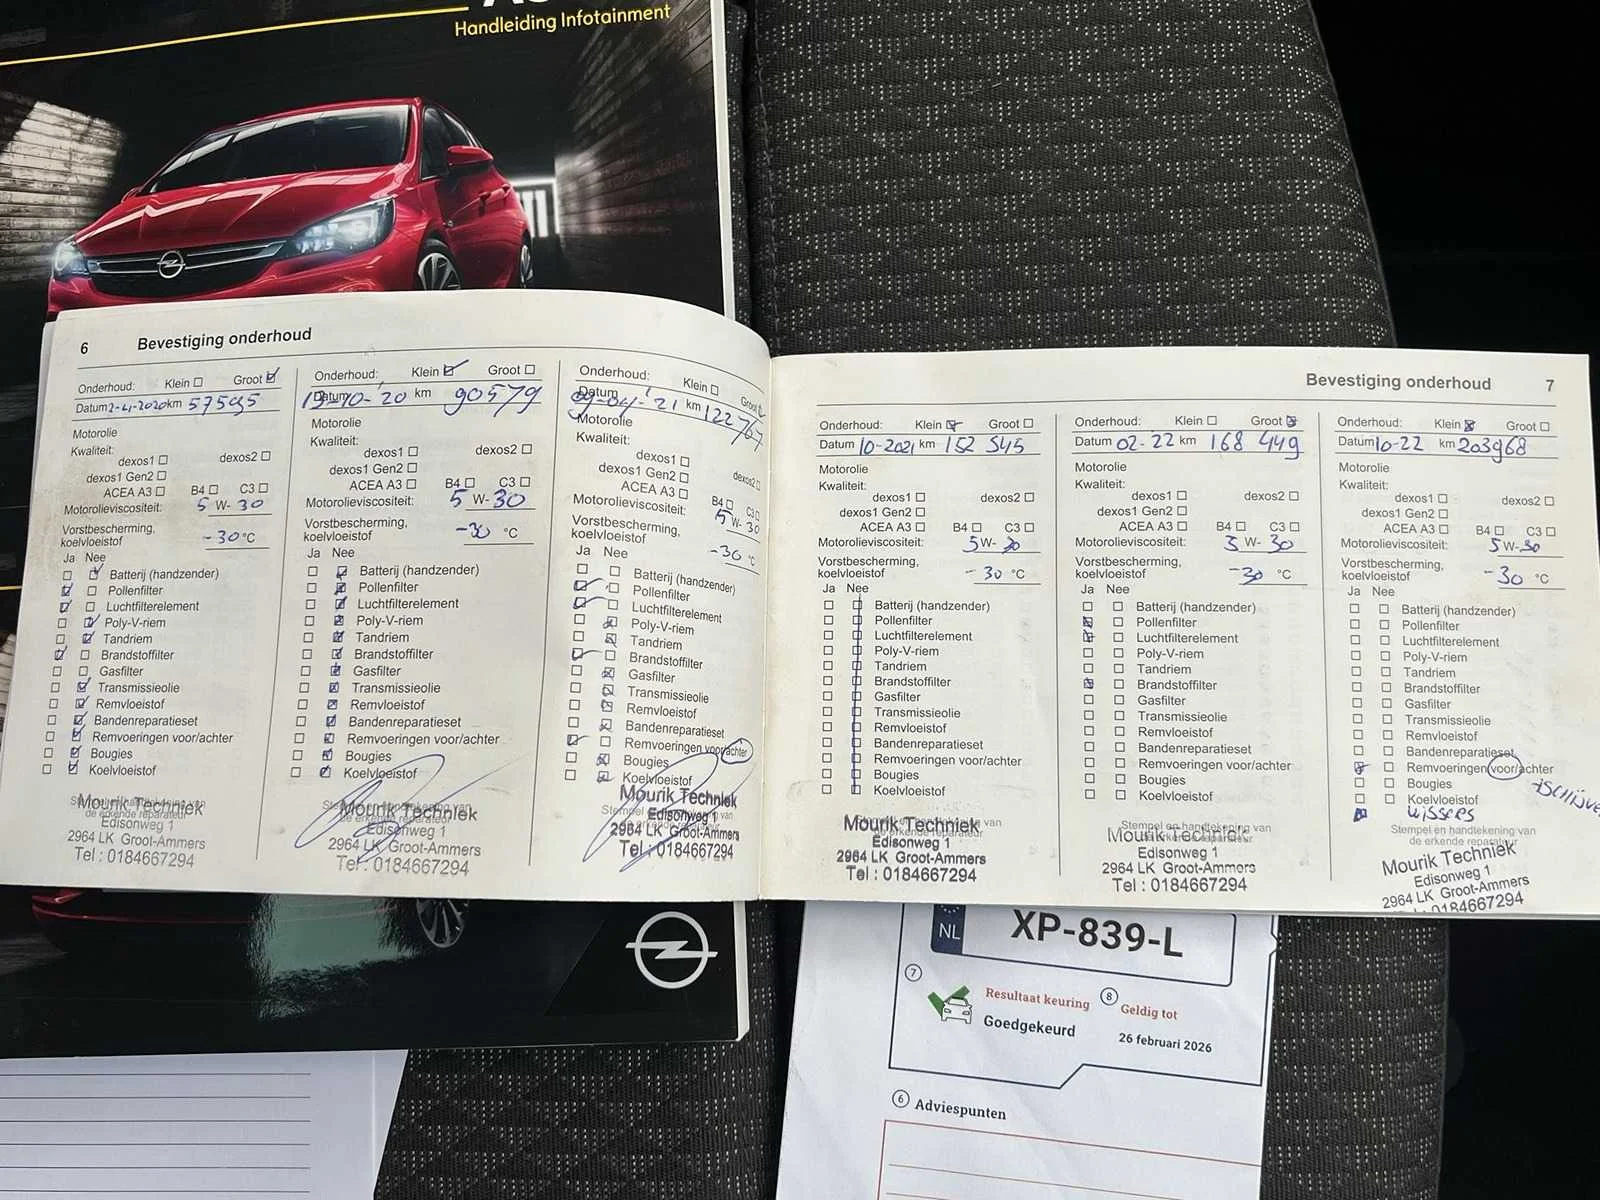 Handleiding Infotainment
6 Bevestiging onderhoud
Onderhoud: Klein Groot
Datum 2-4-2020 km 57595
Motorolie
Kwaliteit:
dexos1 dexos2
dexos1 Gen2
ACEA A3 B4 C3
Motorolieviscositeit: 5 W- 30
Vorstbescherming,
koelvloeistof -30 °C
Ja Nee
Batterij (handzender)
Pollenfilter
Luchtfilterelement
Poly-V-riem
Tandriem
Brandstoffilter
Gasfilter
Transmissieolie
Remvloeistof
Bandenreparatieset
Remvoeringen voor/achter
Bougies
Koelvloeistof
Mourik Techniek
Edisonweg 1
2964 LK Groot-Ammers
Tel : 0184667294
Onderhoud: Klein Groot
Datum -10-'20 km 90579
Motorolie
Kwaliteit:
dexos1 dexos2
dexos1 Gen2
ACEA A3 B4 C3
Motorolieviscositeit: 5 W- 30
Vorstbescherming,
koelvloeistof -30 °C
Ja Nee
Batterij (handzender)
Pollenfilter
Luchtfilterelement
Poly-V-riem
Tandriem
Brandstoffilter
Gasfilter
Transmissieolie
Remvloeistof
Bandenreparatieset
Remvoeringen voor/achter
Bougies
Koelvloeistof
Stempel en handtekening van
de erkende reparateur
Mourik Techniek
Edisonweg 1
2964 LK Groot-Ammers
Tel : 0184667294
Onderhoud: Klein Groot
Datum 09-04-'21 km 122767
Motorolie
Kwaliteit:
dexos1 dexos2
dexos1 Gen2
ACEA A3 B4 C3
Motorolieviscositeit: 5 W- 30
Vorstbescherming,
koelvloeistof -30 °C
Ja Nee
Batterij (handzender)
Pollenfilter
Luchtfilterelement
Poly-V-riem
Tandriem
Brandstoffilter
Gasfilter
Transmissieolie
Remvloeistof
Bandenreparatieset
Remvoeringen voor/achter
Bougies
Koelvloeistof
Mourik Techniek
Edisonweg 1
2964 LK Groot-Ammers
Tel : 0184667294
Bevestiging onderhoud 7
Onderhoud: Klein Groot
Datum 10-2021 km 152 545
Motorolie
Kwaliteit:
dexos1 dexos2
dexos1 Gen2
ACEA A3 B4 C3
Motorolieviscositeit: 5 W- 30
Vorstbescherming,
koelvloeistof -30 °C
Ja Nee
Batterij (handzender)
Pollenfilter
Luchtfilterelement
Poly-V-riem
Tandriem
Brandstoffilter
Gasfilter
Transmissieolie
Remvloeistof
Bandenreparatieset
Remvoeringen voor/achter
Bougies
Koelvloeistof
Mourik Techniek
Edisonweg 1
2964 LK Groot-Ammers
Tel : 0184667294
Onderhoud: Klein Groot
Datum 02-22 km 168 449
Motorolie
Kwaliteit:
dexos1 dexos2
dexos1 Gen2
ACEA A3 B4 C3
Motorolieviscositeit: 5 W- 30
Vorstbescherming,
koelvloeistof -30 °C
Ja Nee
Batterij (handzender)
Pollenfilter
Luchtfilterelement
Poly-V-riem
Tandriem
Brandstoffilter
Gasfilter
Transmissieolie
Remvloeistof
Bandenreparatieset
Remvoeringen voor/achter
Bougies
Koelvloeistof
Stempel en handtekening van
de erkende reparateur
Mourik Techniek
Edisonweg 1
2964 LK Groot-Ammers
Tel : 0184667294
Onderhoud: Klein Groot
Datum 10-22 km 203968
Motorolie
Kwaliteit:
dexos1 dexos2
dexos1 Gen2
ACEA A3 B4 C3
Motorolieviscositeit: 5 W-30
Vorstbescherming,
koelvloeistof -30 °C
Ja Nee
Batterij (handzender)
Pollenfilter
Luchtfilterelement
Poly-V-riem
Tandriem
Brandstoffilter
Gasfilter
Transmissieolie
Remvloeistof
Bandenreparatieset
Remvoeringen voor/achter
Bougies
Koelvloeistof
wissers
Stempel en handtekening van
de erkende reparateur
Mourik Techniek
Edisonweg 1
2964 LK Groot-Ammers
0184667294
NL XP-839-L
7 Resultaat keuring
Goedgekeurd
8 Geldig tot
26 februari 2026
6 Adviespunten